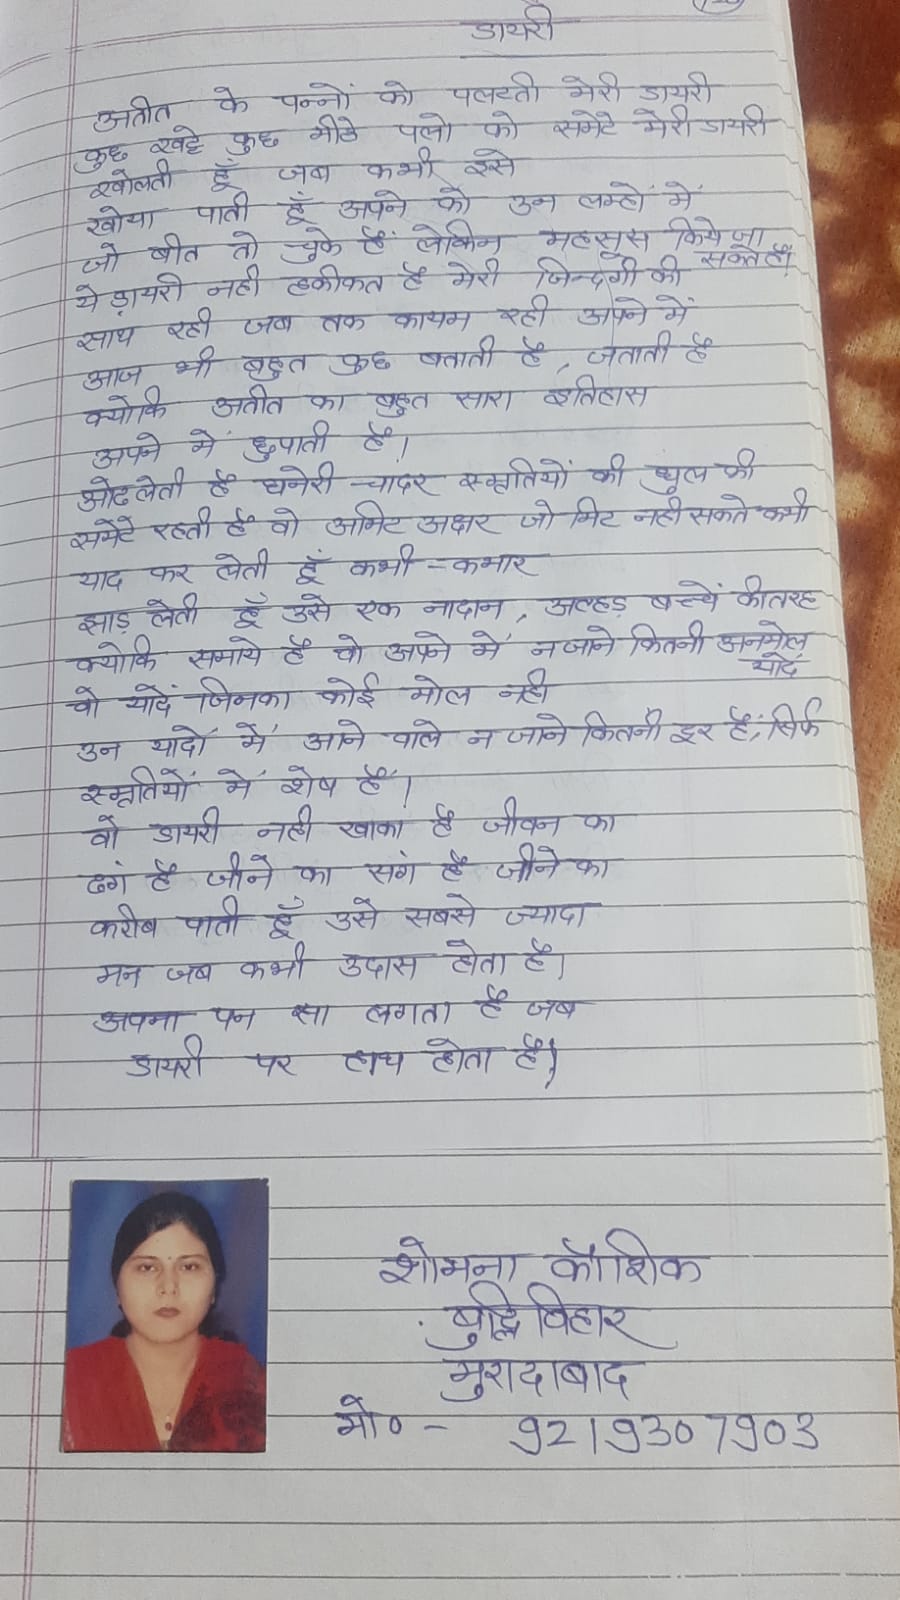 डायरी
अतीत के पन्नों को पलटती मेरी डायरी
कुछ खट्टे कुछ मीठे पलो को समेटे मेरी डायरी
खोलती हूँ जब कभी इसे
खोया पाती हूँ अपने को उन लम्हों में
जो बीत तो चुके हैं लेकिन महसूस किये जा
सकते हैं।
ये डायरी नही हकीकत है मेरी जिन्दगी की
साथ रही जब तक कायम रही अपने में
आज भी बहुत कुछ बताती है, जताती है
क्योकि अतीत का बहुत सारा इतिहास
अपने में छुपाती है।
ओढ लेती है घनेरी चादर स्मृतियों की धुल की
समेटे रहती है वो अमिट अक्षर जो मिट नही सकते कभी
याद कर लेती हूँ कभी-कभार
झाड़ लेती हूँ उसे एक नादान, अल्हड़ बच्चें की तरह
क्योकि समाये है वो अपने में न जाने कितनी अनमोल
यादें
वो यादें जिनका कोई मोल नही
उन यादों में आने वाले न जाने कितनी दूर हैं, सिर्फ
स्मृतियों में शेष हैं।
वो डायरी नही खाका है जीवन का
ढंग है जीने का संग है जीने का
करीब पाती हूँ उसे सबसे ज्यादा
मन जब कभी उदास होता है।
अपना पन सा लगता है जब
डायरी पर हाथ होता है।
शोभना कौशिक
बुद्धि विहार
मुरादाबाद
मो० - 9219307903